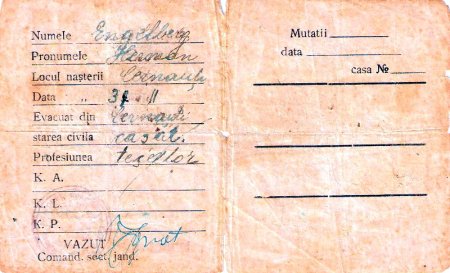 Numele Engelberg
Pronumele Herman
Locul nașterii Cernauți
Data „
Evacuat din Cernauți
starea civila casăt.
Profesiunea țesător
K. A.
K. L.
K. P.
VAZUT
Comand. sect. jand.
Mutatii
data
casa №